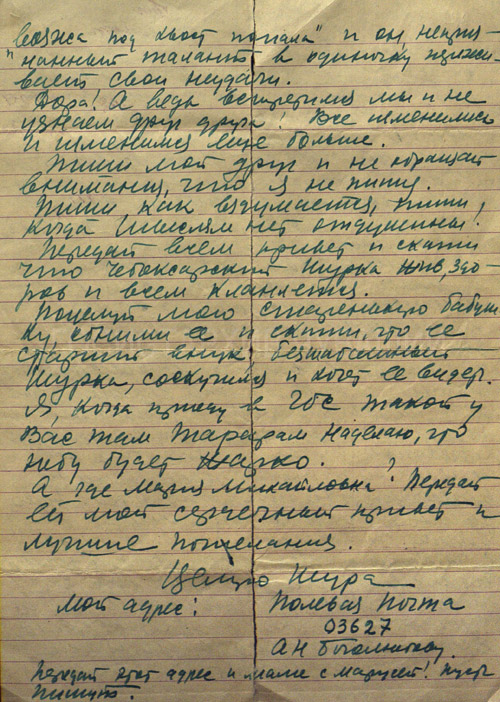 вожжа под хвост попала" и он, непри-
"нанный талант в одиночку пережи-
вает свои неудачи.
Дора! А ведь встретимся мы и не
узнаем друг друга! Все изменились
и изменимся еще больше.
Пиши мой друг и не обращай
внимания, что я не пишу.
Пиши как вздумается, пиши,
когда мыслям нет отдушины!
Передай всем привет и скажи
что Чебоксарский Шурка жив, здо-
ров и всем кланяется.
Поцелуй мою старенькую бабуш
ку, обними ее и скажи, что ее
старший внук безшабашный
Шурка, соскучился и хочет ее видеть.
Я, когда приеду в Чбс такой у
Вас там тарарам наделаю, что
небу будет жарко.
А где Мария Михайловна? Передай
ей мой сердечный привет и
лучшие пожелания.
Целую Шура
Мой адрес: Полевая Почта
03627
А Н
Передай этот адрес и маме с Марусей! Пусть
пишут.